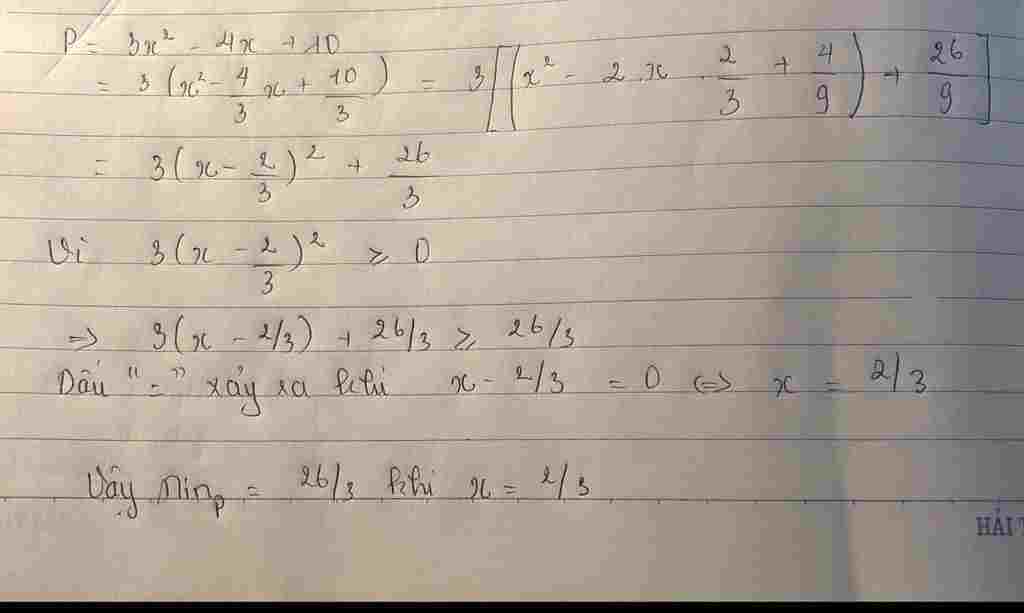 P = 3x² - 4x + 10
= 3(x² - 4/3 x + 10/3) = 3[(x² - 2.x . 2/3 + 4/9) + 26/9]
= 3(x - 2/3)² + 26/3
Vì 3(x - 2/3)² ≥ 0
=> 3(x - 2/3) + 26/3 ≥ 26/3
Dấu "=" xảy ra khi x - 2/3 = 0 <=> x = 2/3
Vậy Min_P = 26/3 khi x = 2/3
HẢI